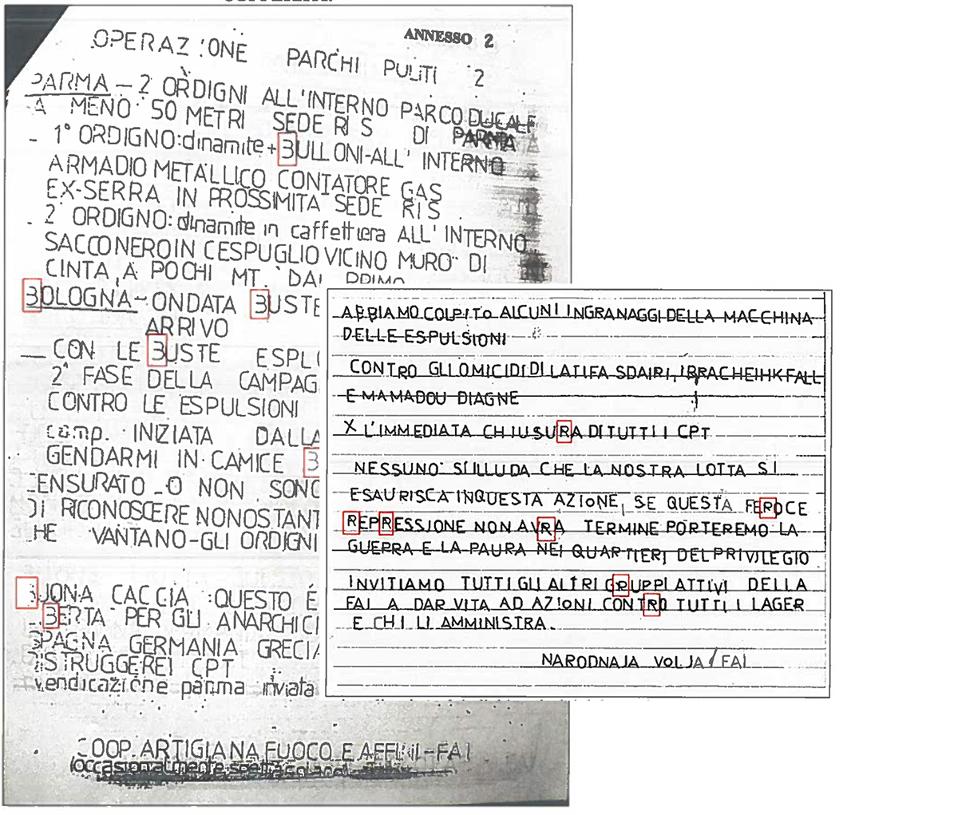 ANNESSO 2
OPERAZIONE PARCHI PULITI 2
PARMA - 2 ORDIGNI ALL'INTERNO PARCO DUCALE
A MENO 50 METRI SEDE RIS DI PARMA
- 1° ORDIGNO: dinamite + BULLONI - ALL' INTERNO
ARMADIO METALLICO CONTATORE GAS
EX-SERRA IN PROSSIMITA SEDE RIS
- 2° ORDIGNO: dinamite in caffettiera ALL' INTERNO
SACCO NERO IN CESPUGLIO VICINO MURO DI
CINTA A POCHI MT. DAL PRIMO
BOLOGNA - ONDATA BUSTE
ARRIVO
- CON LE BUSTE ESPL
2ª FASE DELLA CAMPAG
CONTRO LE ESPULSIONI
comp. INIZIATA DALLA
GENDARMI IN CAMICE B
CENSURATO - O NON SONO
DI RICONOSCERE NONOSTANT
CHE VANTANO - GLI ORDIGNI
BUONA CACCIA : QUESTO É
BERTA PER GLI ANARCHICI
SPAGNA GERMANIA GRECIA
DISTRUGGEREI CPT
vendicazione parma inviata
COOP. ARTIGIANA FUOCO E AFFINI - FAI
(occasionalmente
ABBIAMO COLPITO ALCUNI INGRANAGGI DELLA MACCHINA
DELLE ESPULSIONI
CONTRO GLI OMICIDI DI LATIFA SDAIRI, IBRACHEIHK FALL
E MAMADOU DIAGNE
X L'IMMEDIATA CHIUSURA DI TUTTI I CPT
NESSUNO SI ILLUDA CHE LA NOSTRA LOTTA SI
ESAURISCA IN QUESTA AZIONE, SE QUESTA FEROCE
REPRESSIONE NON AVRA TERMINE PORTEREMO LA
GUERRA E LA PAURA NEI QUARTIERI DEL PRIVILEGIO
INVITIAMO TUTTI GLI ALTRI GRUPPI ATTIVI DELLA
FAI A DAR VITA AD AZIONI CONTRO TUTTI I LAGER
E CHI LI AMMINISTRA.
NARODNAJA VOLJA / FAI